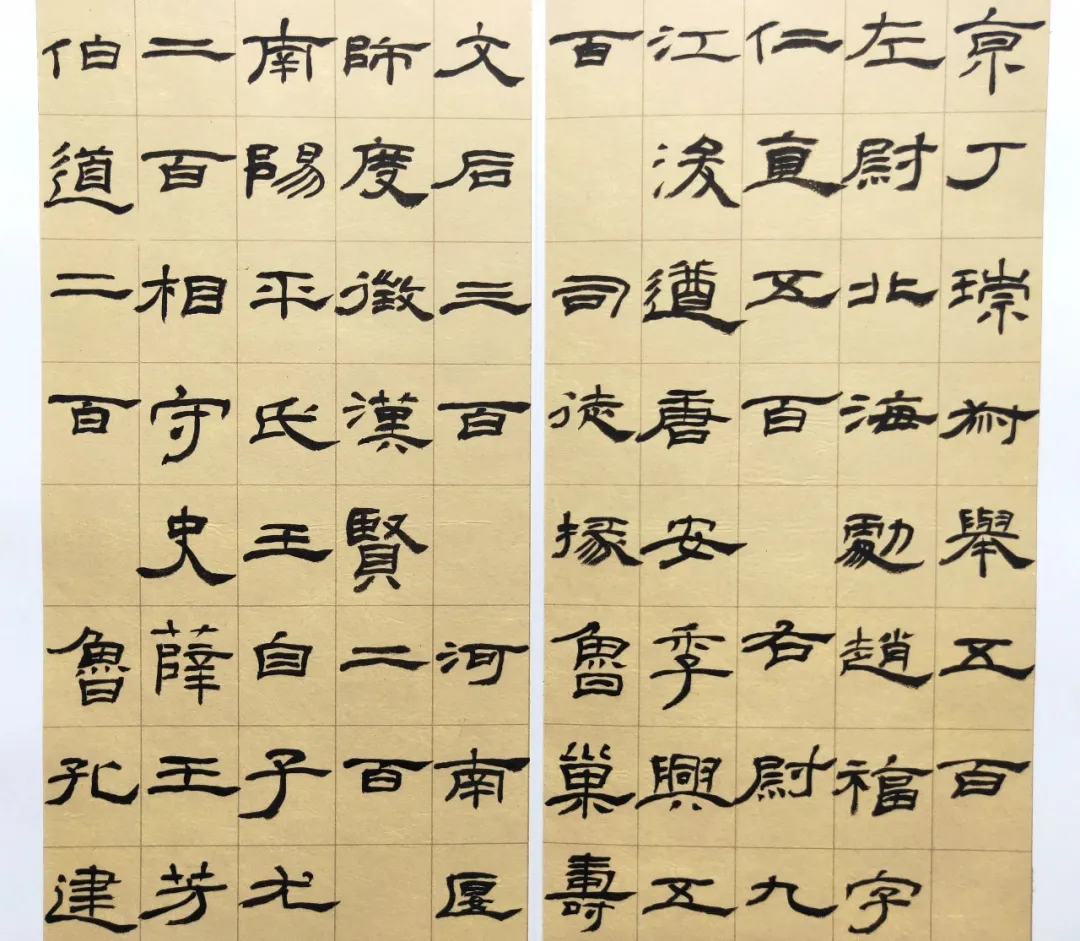 京丁琮叔舉五百
左尉北海劇趙福字
仁直五百 右尉九
江浚遒唐安季興五
百 司徒掾魯巢壽
文后三百 河南匽
師度徵漢賢二百
南陽平氏王自子尤
二百相守史薛王芳
伯道二百 魯孔建